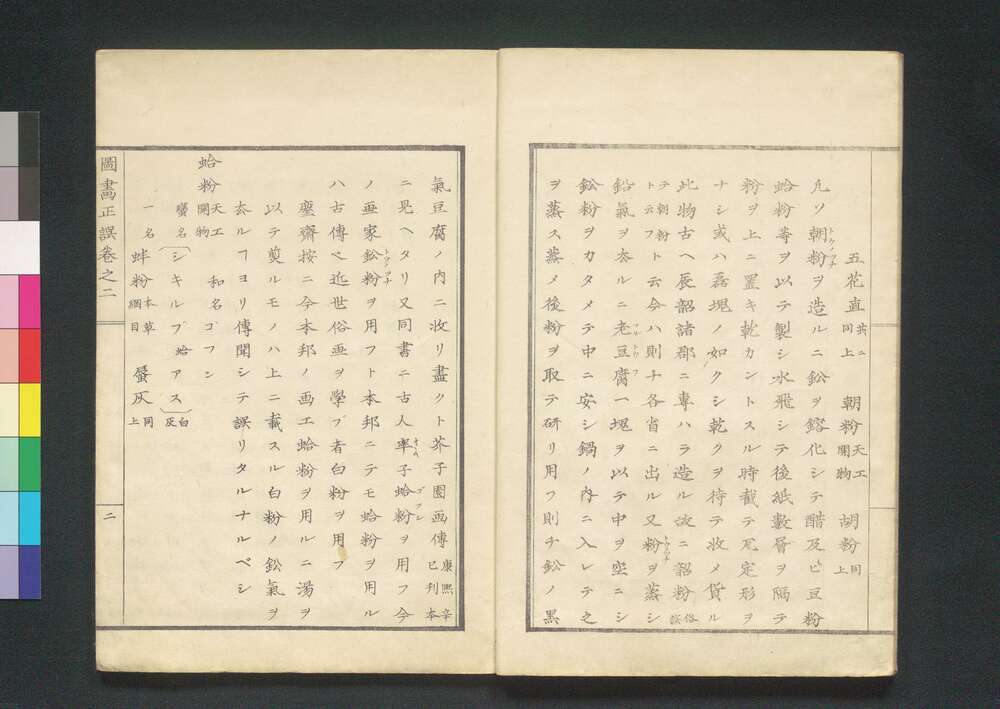 五花直 共ニ同上 朝粉 天工開物 胡粉 同上
凡ソ朝粉ヲ造ルニ鈆ヲ鎔化シテ醋及ビ豆粉
蛤粉等ヲ以テ製シ水飛シテ後紙數層ヲ隔テ
粉ヲ上ニ置キ乾カントスル時截テ瓦定形ヲ
ナシ或ハ磊塊ノ如クシ乾クヲ待テ收メ貨ル
此物古ヘ辰韶諸郡ニ專ハラ造ル故ニ韶粉 俗誤
テ朝粉ト云フ ト云今ハ則チ各省ニ出ル又粉ヲ蒸シ
鉛氣ヲ去ルニ老豆腐一塊ヲ以テ中ヲ空ニシ
鈆粉ヲカタメテ中ニ安シ鍋ノ内ニ入レテ之
ヲ蒸ス蒸メ後粉ヲ取テ研リ用フ則チ鈆ノ黒
氣豆腐ノ内ニ收リ盡クト芥子園画傳 康熙辛巳刋本
ニ見ヘタリ又同書ニ古人率子蛤粉ヲ用フ今
ノ画家鈆粉ヲ用フト本邦ニテモ蛤粉ヲ用ル
ハ古傳也近世俗画ヲ學ブ者白粉ヲ用フ
塵齋按ニ今本邦ノ画工蛤粉ヲ用ルニ湯ヲ
以テ䒱ルモノハ上ニ載スル白粉ノ鈆氣ヲ
去ルフヨリ傳聞シテ誤リタルナルベシ
蛤粉 天工開物 和名ゴフン
蠻名 シキルプ 蛤 アス 白灰
一名 蚌粉 本草綱目 蜃灰 同上
圖畵正誤卷之二
二